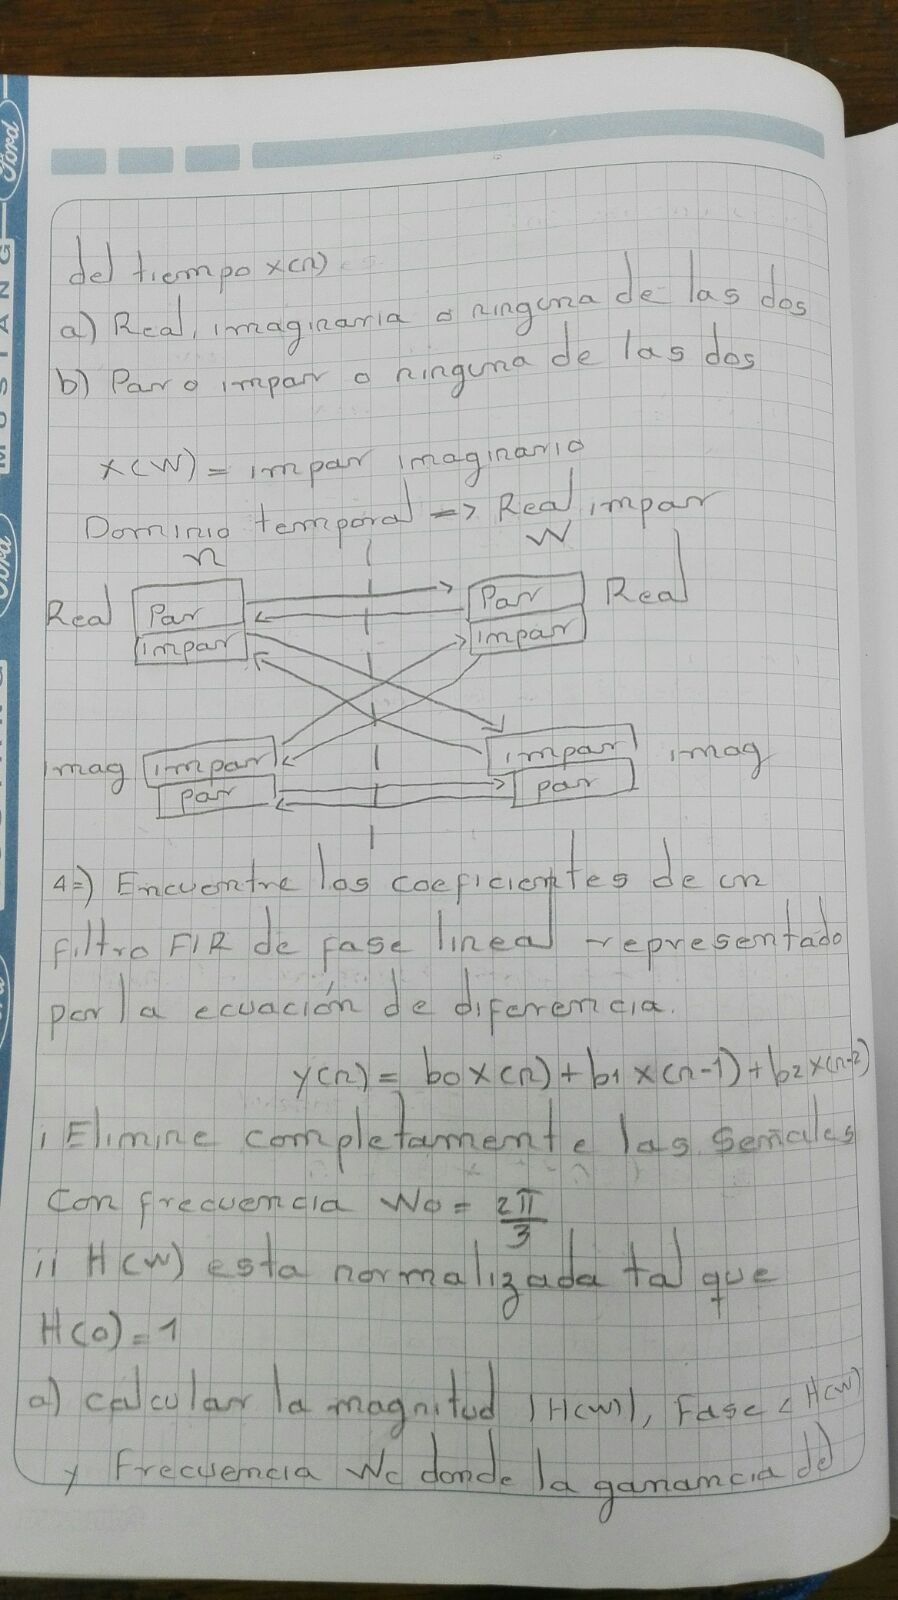 del tiempo x(n)
a) Real, imaginaria o ninguna de las dos
b) Par o impar o ninguna de las dos
x(w) = impar imaginario
Dominio temporal => Real, impar
n W
Real Par Par Real
impar impar
imag impar impar imag
par par
4=) Encuentre los coeficientes de un
filtro FIR de fase lineal representado
por la ecuación de diferencia.
y(n) = b0 x(n) + b1 x(n-1) + b2 x(n-2)
i Elimine completamente las señales
con frecuencia W0 = 2π/3
ii H(w) esta normalizada tal que
H(0) = 1
a) calcular la magnitud |H(w)|, Fase < H(w)
y Frecuencia Wc donde la ganancia del
Ford
MUSTANG
Ford